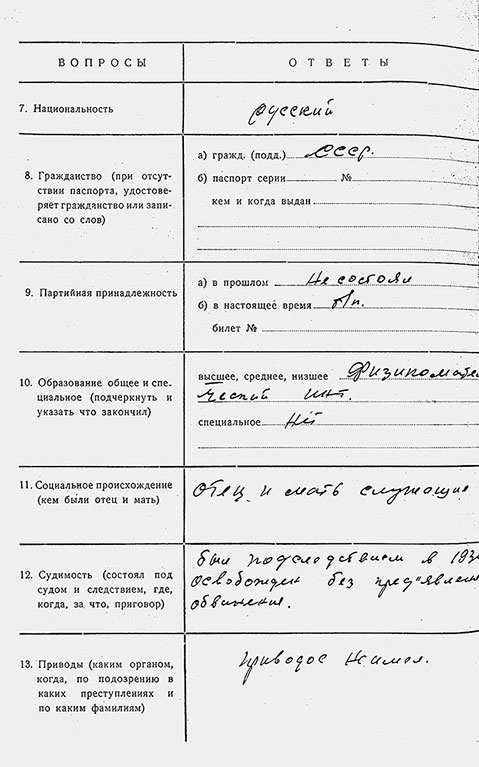 ВОПРОСЫ
ОТВЕТЫ
7. Национальность
русский
8. Гражданство (при отсут-
ствии паспорта, удостове-
ряет гражданство или запи-
сано со слов)
а) гражд. (подд.) СССР.
б) паспорт серии №
кем и когда выдан
9. Партийная принадлежность
а) в прошлом Не состоял
б) в настоящее время б/п.
билет №
10. Образование общее и спе-
циальное (подчеркнуть и
указать что закончил)
высшее, среднее, низшее Физикомате
ческий инт.
специальное Нет
11. Социальное происхождение
(кем были отец и мать)
Отец и мать служащие
12. Судимость (состоял под
судом и следствием, где,
когда, за что, приговор)
был под следствием в 193
освобожден без предъявлен
обвинения.
13. Приводы (каким органом,
когда, по подозрению в
каких преступлениях и
по каким фамилиям)
приводов